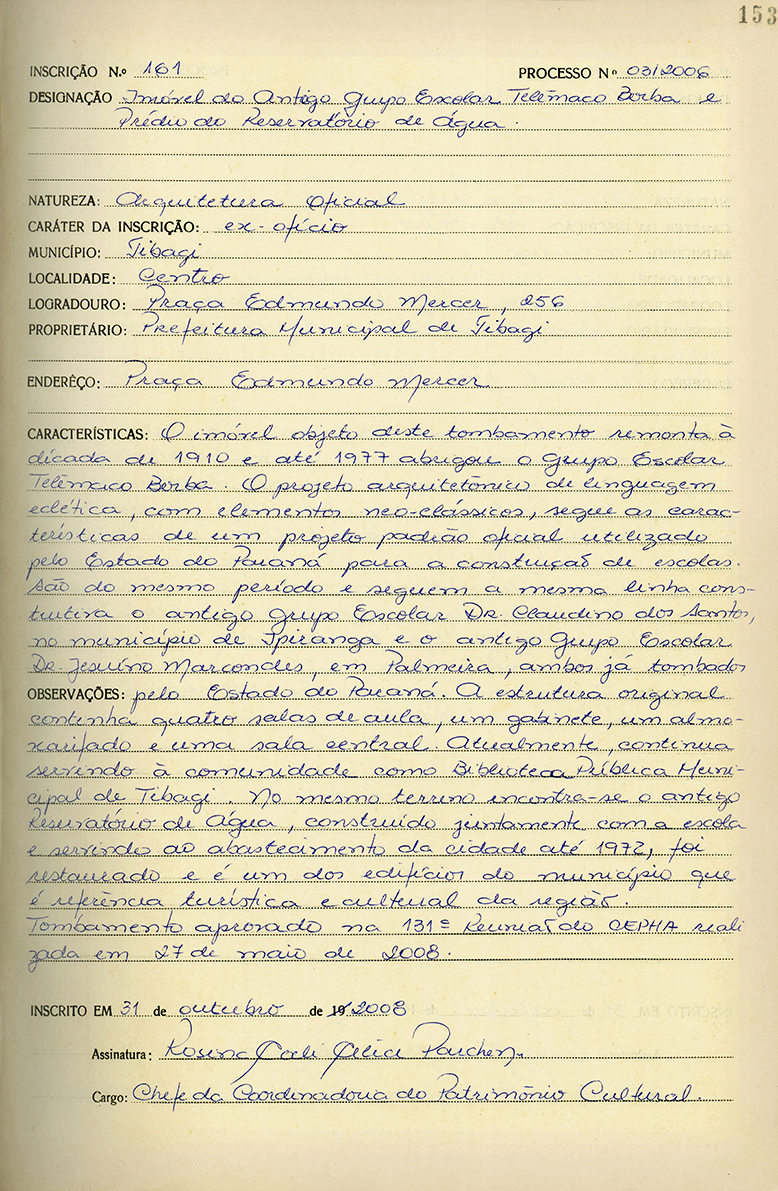 153
INSCRIÇÃO N.º 161 PROCESSO Nº 03/2006
DESIGNAÇÃO Imóvel do Antigo Grupo Escolar Telêmaco Borba e
Prédio do Reservatório de Água.
NATUREZA: Arquitetura Oficial
CARÁTER DA INSCRIÇÃO: ex-ofício
MUNICÍPIO: Tibagi
LOCALIDADE: Centro
LOGRADOURO: Praça Edmundo Mercer, 256
PROPRIETÁRIO: Prefeitura Municipal de Tibagi
ENDERÊÇO: Praça Edmundo Mercer
CARACTERÍSTICAS: O imóvel objeto deste tombamento remonta à
década de 1910 e até 1977 abrigou o Grupo Escolar
Telêmaco Borba. O projeto arquitetônico de linguagem
eclética, com elementos neo-clássicos, segue as carac-
terísticas de um projeto padrão oficial utilizado
pelo Estado do Paraná para a construção de escolas.
São do mesmo período e seguem a mesma linha cons-
tutiva o antigo Grupo Escolar Dr. Claudino dos Santos,
no município de Ipiranga e o antigo Grupo Escolar
Dr. Jesuíno Marcondes, em Palmeira, ambos já tombados
OBSERVAÇÕES: pelo Estado do Paraná. A estrutura original
continha quatro salas de aula, um gabinete, um almo-
xarifado e uma sala central. Atualmente, continua
servindo à comunidade como Biblioteca Pública Muni-
cipal de Tibagi. No mesmo terreno encontra-se o antigo
Reservatório de Água, construído juntamente com a escola
e servindo ao abastecimento da cidade até 1972, foi
restaurado e é um dos edifícios do município que
é referência turística e cultural da região.
Tombamento aprovado na 131ª Reunião do CEPHA reali
zada em 27 de maio de 2008.
INSCRITO EM 31 de outubro de 19 2008
Assinatura: Rosina Coeli Alice Parchen
Cargo: Chefe da Coordenadoria do Patrimônio Cultural.